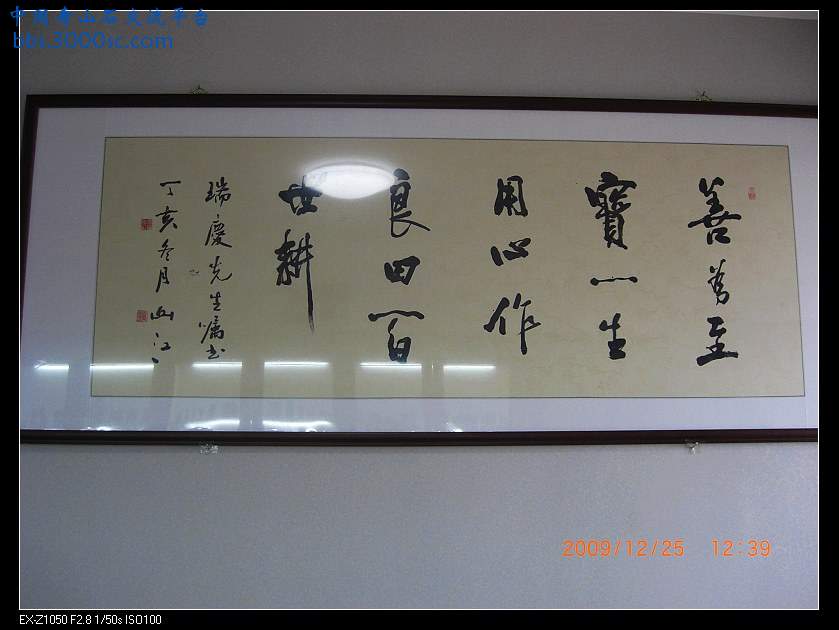 中国奇山石交流平台
bbs.3000sc.com
善为至
寶一生
用心作
良田百
世耕
瑞慶先生嘱书
丁亥冬月山江
2009/12/25 12:39
EX-Z1050 F2.8 1/50s ISO100